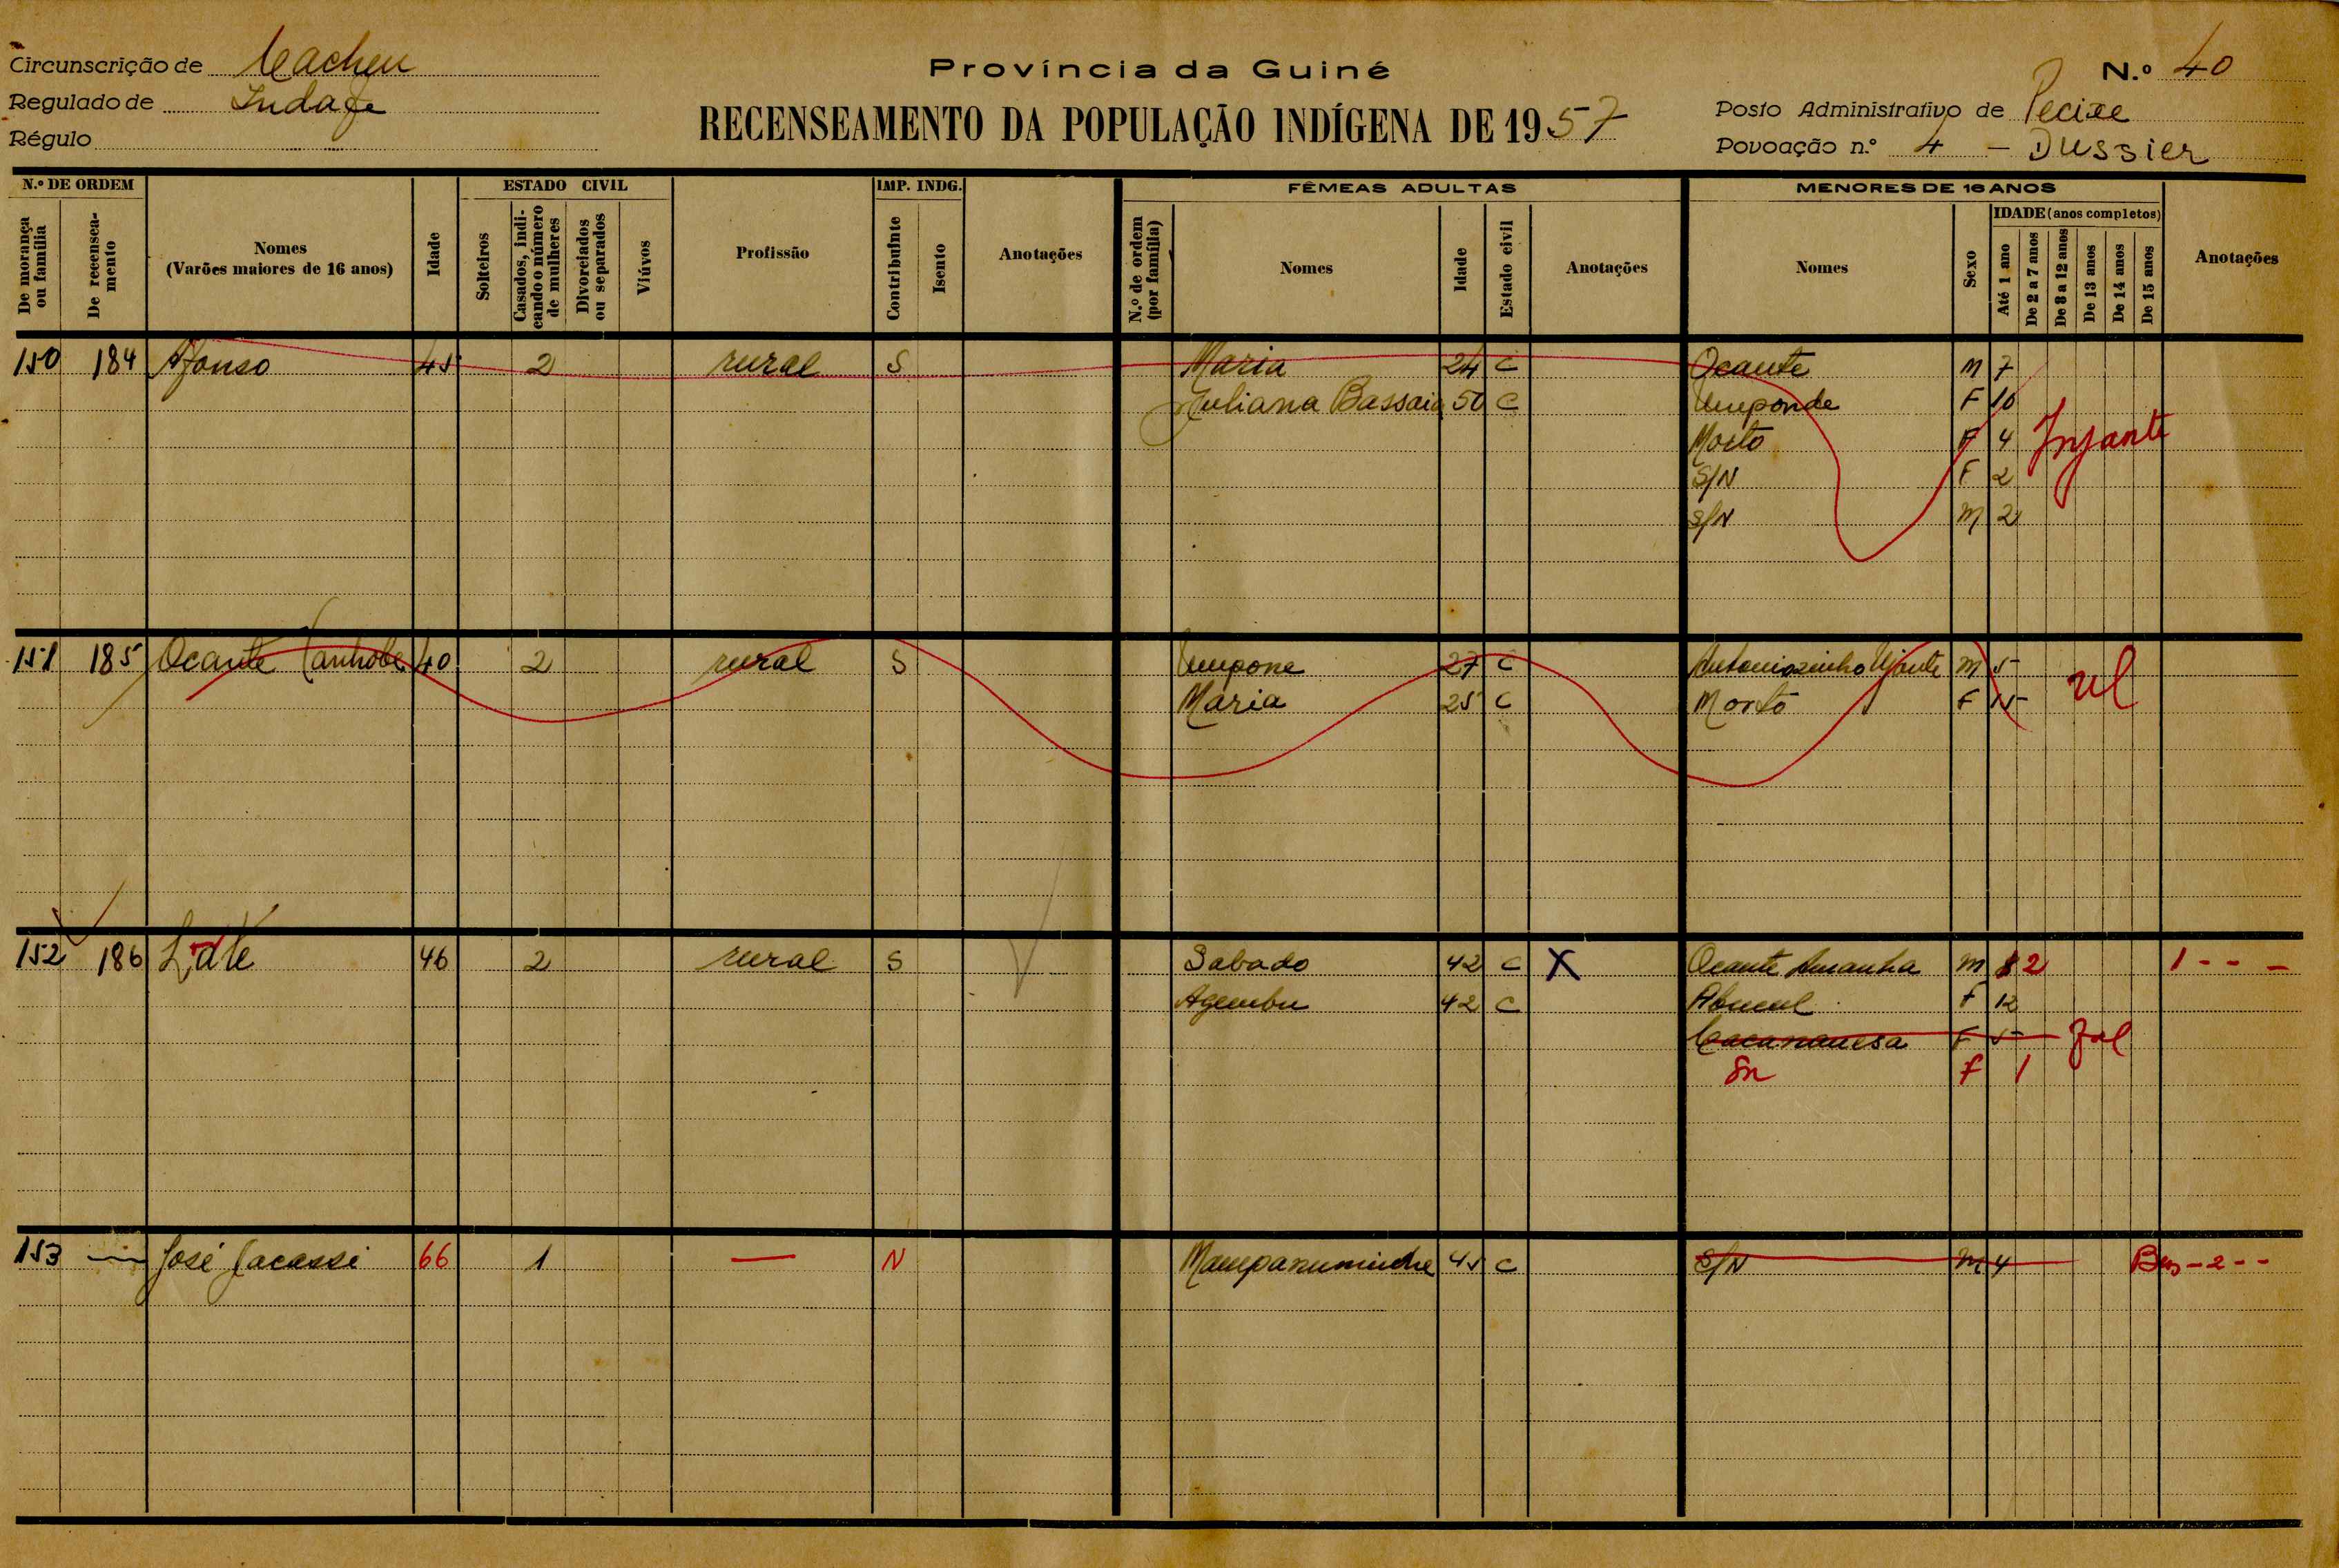 Circunscrição de Cacheu
Regulado de Indafe
Régulo
Província da Guiné
RECENSEAMENTO DA POPULAÇÃO INDÍGENA DE 1957
N.º 40
Posto Administrativo de Pecixe
Povoação n.º 4 - Dussier
N.º DE ORDEM
De morança ou família
De recensea-mento
Nomes
(Varões maiores de 16 anos)
Idade
ESTADO CIVIL
Solteiros
Casados, indi-cando o número de mulheres
Divorciados ou separados
Viúvos
Profissão
IMP. INDG.
Contribuinte
Isento
Anotações
FÊMEAS ADULTAS
N.º de ordem (por família)
Nomes
Idade
Estado civil
Anotações
MENORES DE 16 ANOS
Nomes
Sexo
IDADE (anos completos)
Até 1 ano
De 2 a 7 anos
De 8 a 12 anos
De 13 anos
De 14 anos
De 15 anos
Anotações
150 184 Afonso 45 2 rural S Maria 24 C Ocante M 7
Juliana Bassaia 50 C Umponde F 10
Morto F 4
S/N F 2
S/N M 2
151 185 Ocante Canhobe 40 2 rural S Umpone 27 C Antoniozinho M 5
Maria 25 C Morto F 15
152 186 Laté 46 2 rural S Sabado 42 C X Ocante Amanha M 2 1 - - -
Agembu 42 C F 12
Cacanauesa F 5 fal
Sn F 1
153 José Cacassi 66 1 — N 45 C S/N M 4 - 2 - -